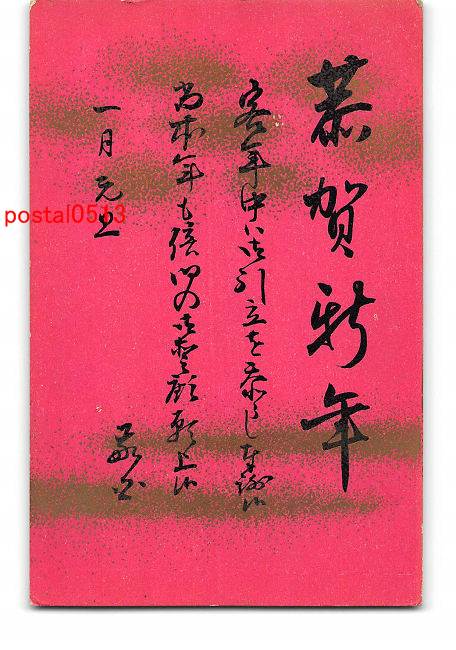 恭賀新年
客年中ハ御引立を忝し奉謝候
尚本年も倍旧の御愛顧願上候
敬白
一月元旦
postal0513